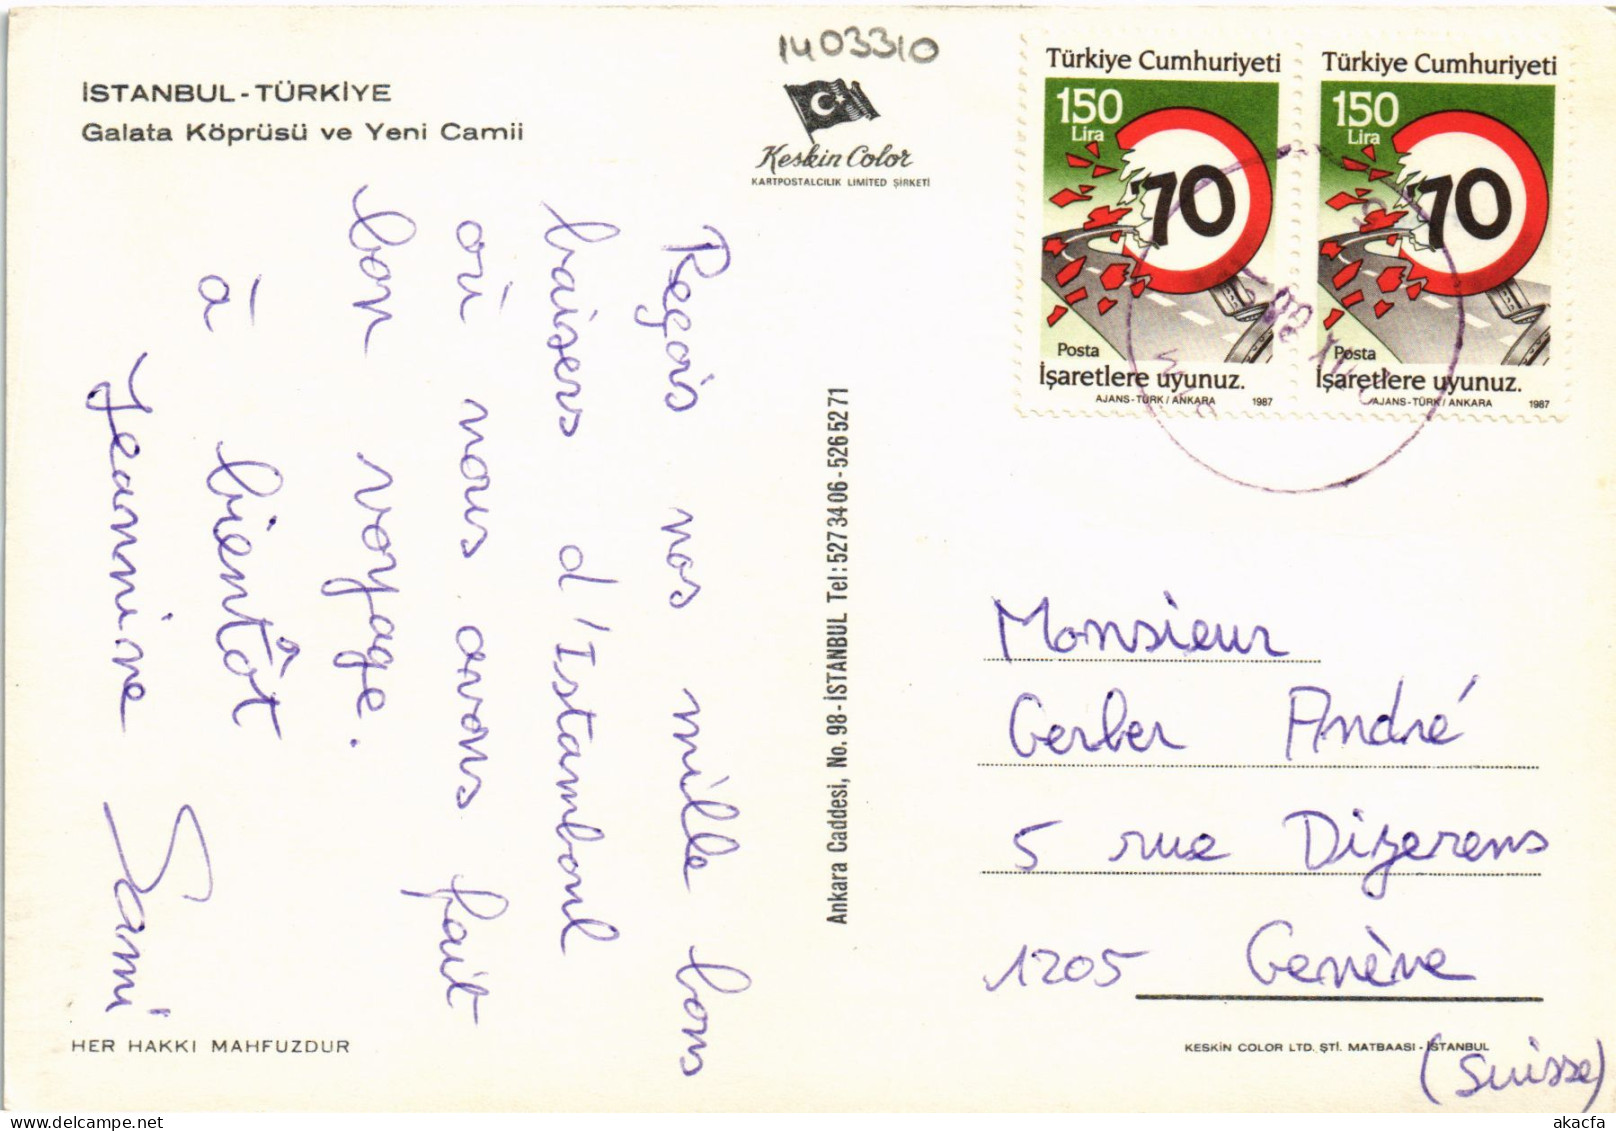 1403310
İSTANBUL - TÜRKİYE
Galata Köprüsü ve Yeni Camii
Keskin Color
KARTPOSTALCILIK LIMITED ŞİRKETİ
Türkiye Cumhuriyeti
150
Lira
70
Posta
İşaretlere uyunuz.
AJANS-TÜRK / ANKARA 1987
Türkiye Cumhuriyeti
150
Lira
70
Posta
İşaretlere uyunuz.
AJANS-TÜRK / ANKARA 1987
Reçois nos mille bons
baisers d'Istamboul
où nous avons fait
bon voyage.
à bientôt
Jeannine Sami
Ankara Caddesi, No. 98 - İSTANBUL Tel: 527 34 06 - 526 52 71
Monsieur
Gerber André
5 rue Dizerens
1205 Genève
(Suisse)
HER HAKKI MAHFUZDUR
KESKİN COLOR LTD. ŞTİ. MATBAASI - İSTANBUL
akacfa